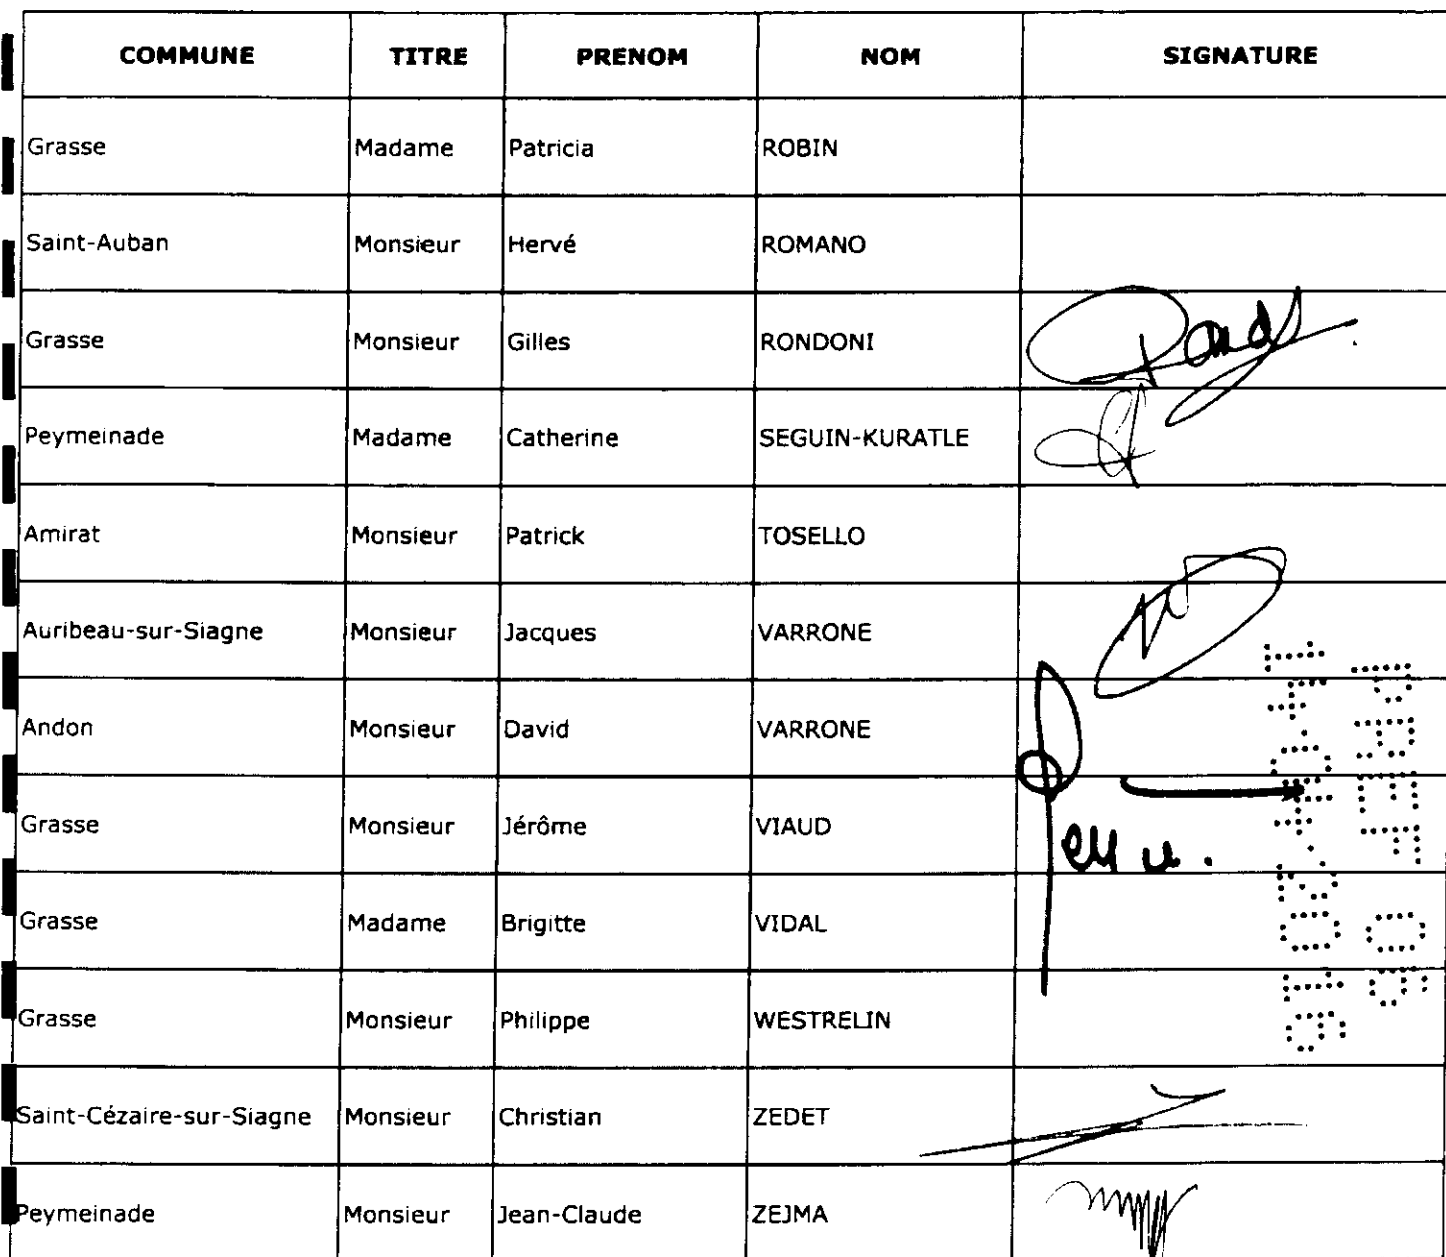 COMMUNE TITRE PRENOM NOM SIGNATURE
Grasse Madame Patricia ROBIN
Saint-Auban Monsieur Hervé ROMANO
Grasse Monsieur Gilles RONDONI
Peymeinade Madame Catherine SEGUIN-KURATLE
Amirat Monsieur Patrick TOSELLO
Auribeau-sur-Siagne Monsieur Jacques VARRONE
Andon Monsieur David VARRONE
Grasse Monsieur Jérôme VIAUD
Grasse Madame Brigitte VIDAL
Grasse Monsieur Philippe WESTRELIN
Saint-Cézaire-sur-Siagne Monsieur Christian ZEDET
Peymeinade Monsieur Jean-Claude ZEJMA
PREF 06